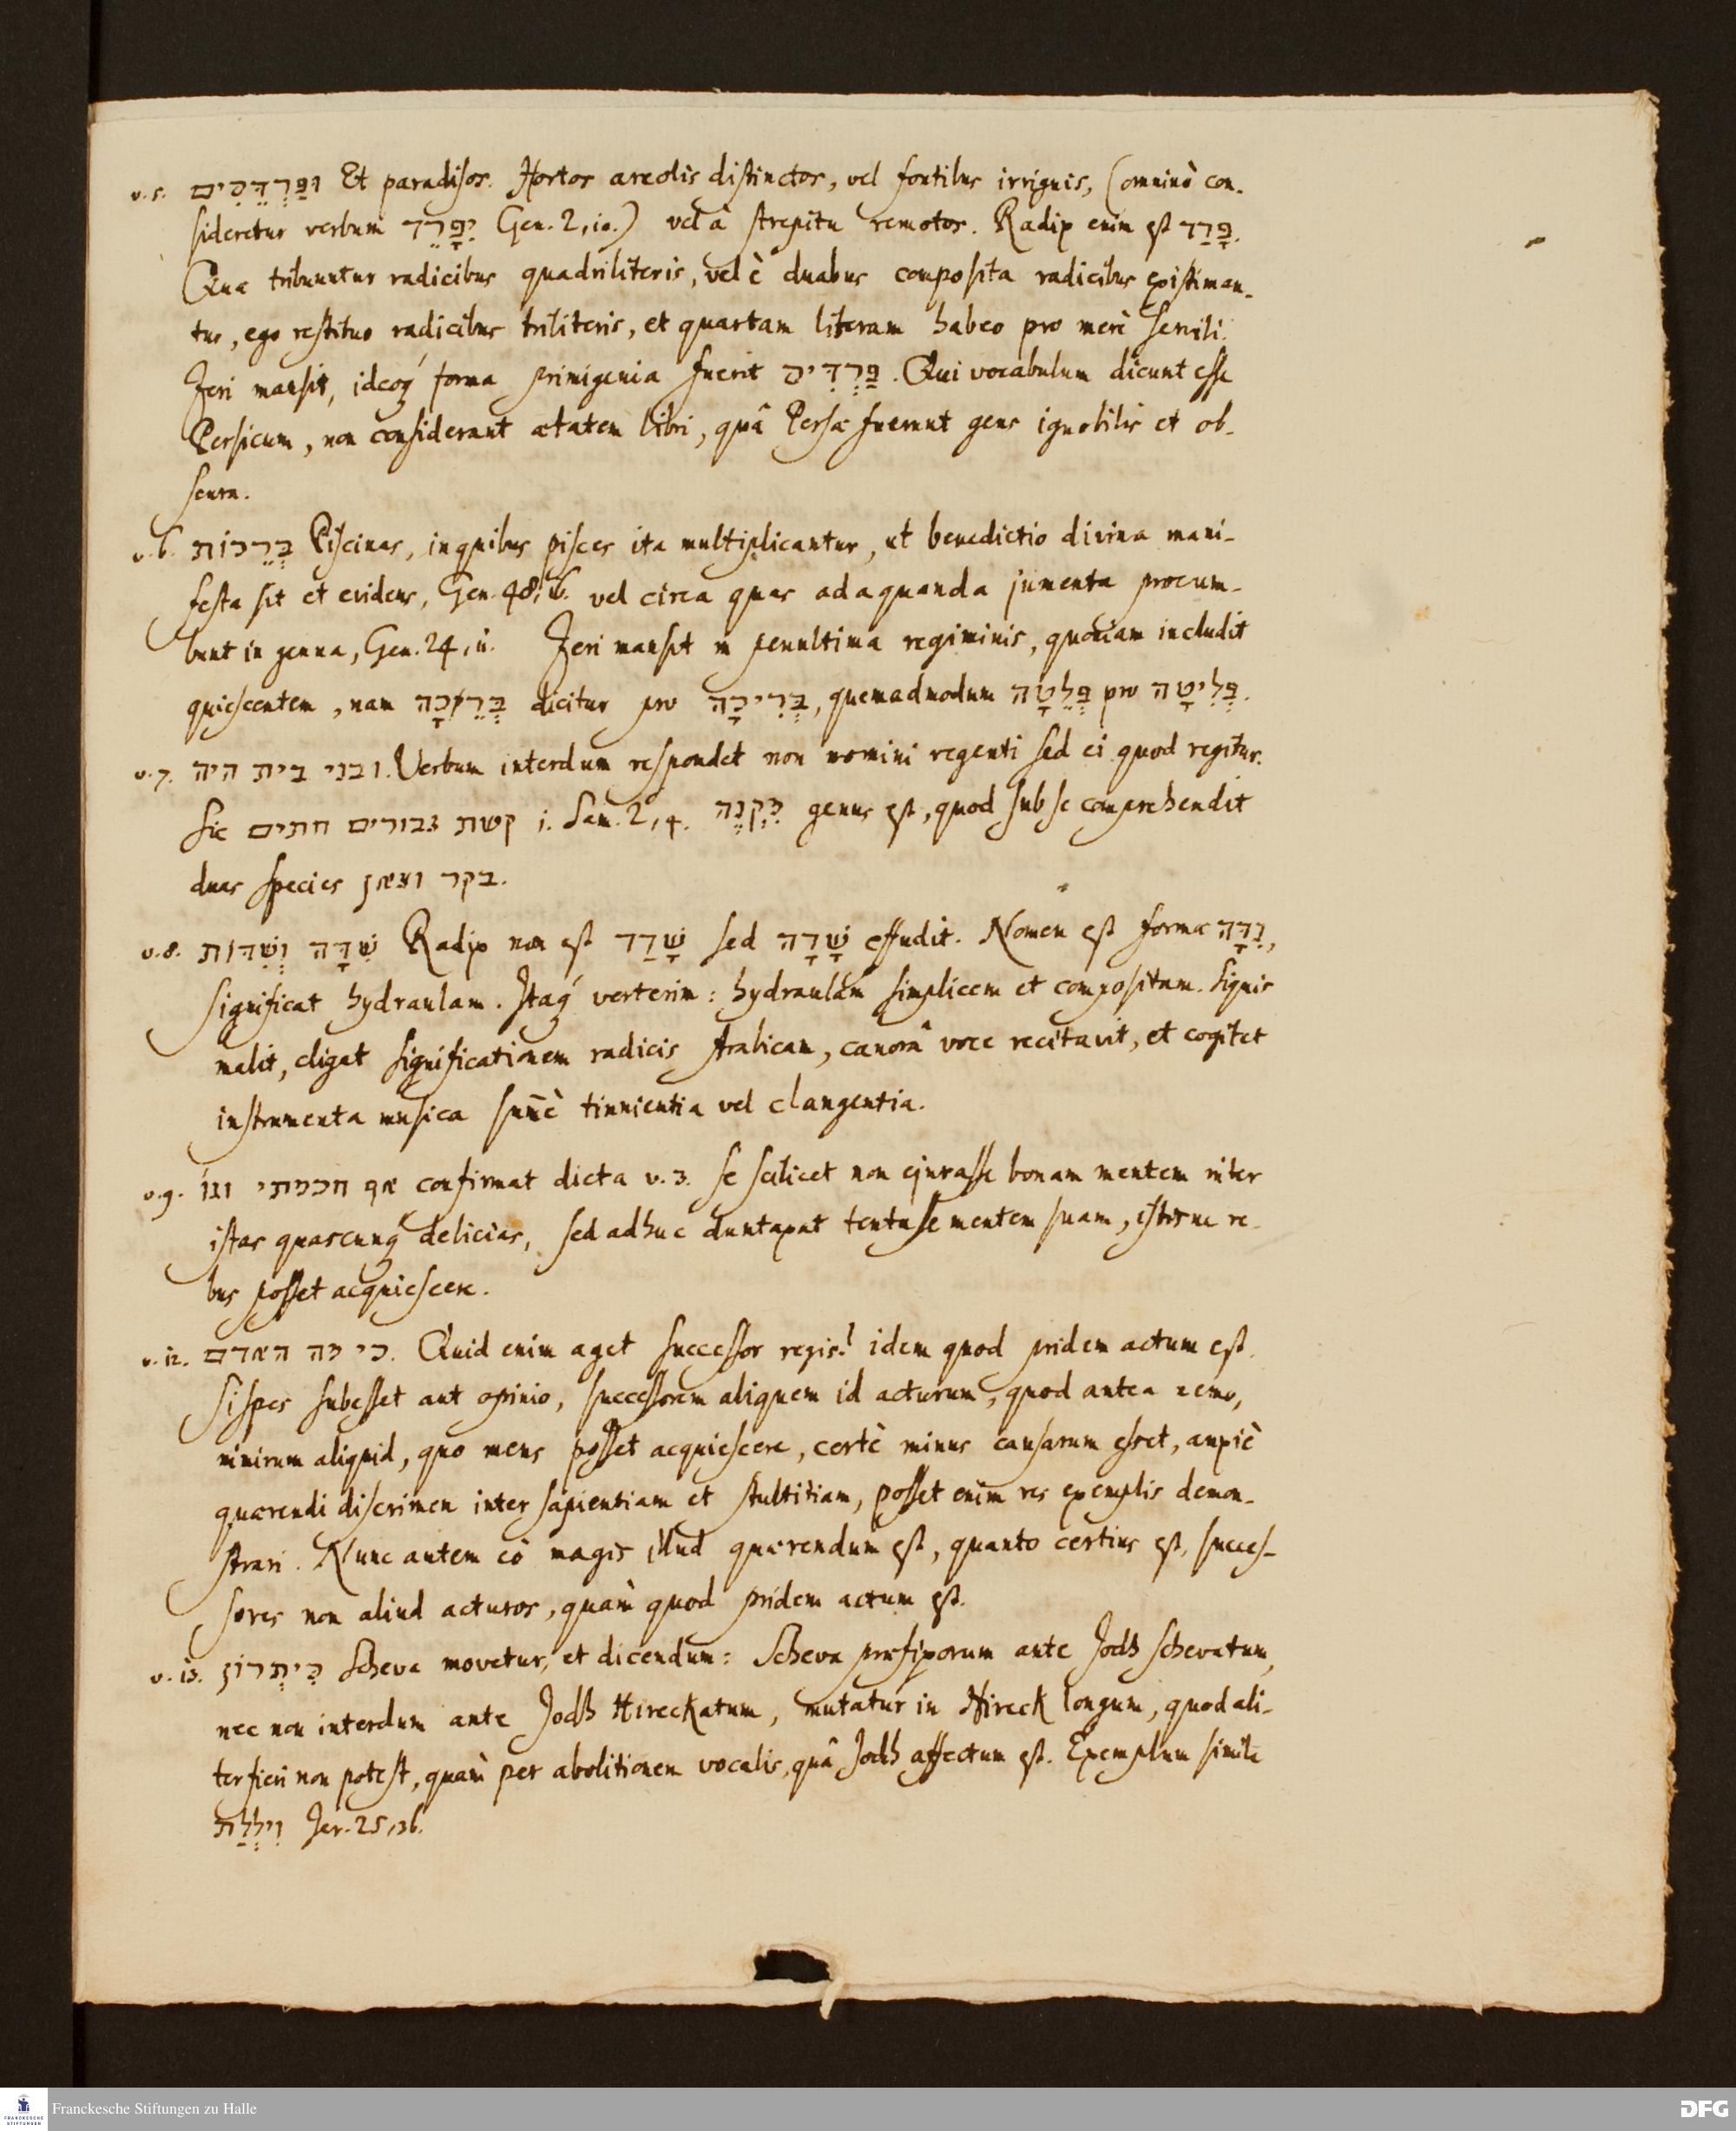 v. 5. וּפַרְדֵּסִים Et paradisos. Hortos areolis distinctos, vel fontibus irriguis, (omninò con-
sideretur verbum יִפָּרֵד Gen. 2, 10.) vel à strepitu remotos. Radix enim est פָּרַד.
Quæ tribuuntur radicibus quadriliteris, vel è duabus composita radicibus existiman-
tur, ego restituo radicibus triliteris, et quartam literam habeo pro merè servili.
Zeri mansit, ideoq́ forma primigenia fuerit פַּרְדִּיס. Qui vocabulum dicunt esse
Persicum, non considerant ætatem libri, quâ Persæ fuerunt gens ignobilis et ob-
scura.
v. 6. בְּרֵכוֹת Piscinas, in quibus pisces ita multiplicantur, ut benedictio divina mani-
festa sit et evidens, Gen. 48, 16. vel circa quas adaquanda jumenta procum-
bunt in genua, Gen. 24, 11. Zeri mansit in penultima regiminis, quoniam includit
quiescentem, nam בְּרֵכָה dicitur pro בְּרִיכָה, quemadmodum פְּלֵטָה pro פְּלִיטָה.
v. 7. ובני בית היה. Verbum interdum respondet non nomini regenti sed ei quod regitur.
Sic קשת גבורים חתים 1. Sam. 2, 4. מִקְנֶה genus est, quod sub se comprehendit
duas species בקר וצאן.
v. 8. שִׁדָּה וְשִׁדּוֹת Radix non est שָׁדַד sed שָׁדָה effudit. Nomen est formæ נִדָּה,
significat hydraulam. Itaq́ verterim: hydraulam simplicem et compositam. Siquis
malit, eligat significationem radicis Arabicam, canorâ voce recitavit, et cogitet
instrumenta musica summè tinnientia vel clangentia.
v. 9. אף חכמתי וגו׳ confirmat dicta v. 3. se scilicet non ejurasse bonam mentem inter
istas quascunq́ delicias, sed adhuc duntaxat tentasse mentem suam, istisne re-
bus posset acquiescere.
v. 12. כי מה האדם. Quid enim aget successor regis? idem quod pridem actum est.
Si spes subesset aut opinio, successorem aliquem id acturum, quod antea nemo,
nimirum aliquid, quo mens posset acquiescere, certè minus causarum esset, anxiè
quærendi discrimen inter sapientiam et stultitiam, posset enim res exemplis demon-
strari. Nunc autem eò magis illud quærendum est, quanto certius est, succes-
sores non aliud acturos, quàm quod pridem actum est.
v. 13. כִּיתְרוֹן Scheva movetur, et dicendum: Scheva præfixorum ante Jodh schevatum,
nec non interdum ante Jodh Hireckatum, mutatur in Hireck longum, quod ali-
ter fieri non potest, quàm per abolitionem vocalis, quâ Jodh affectum est. Exemplum simile
וִילְלַת Jer. 25, 36.
Franckesche Stiftungen zu Halle
DFG